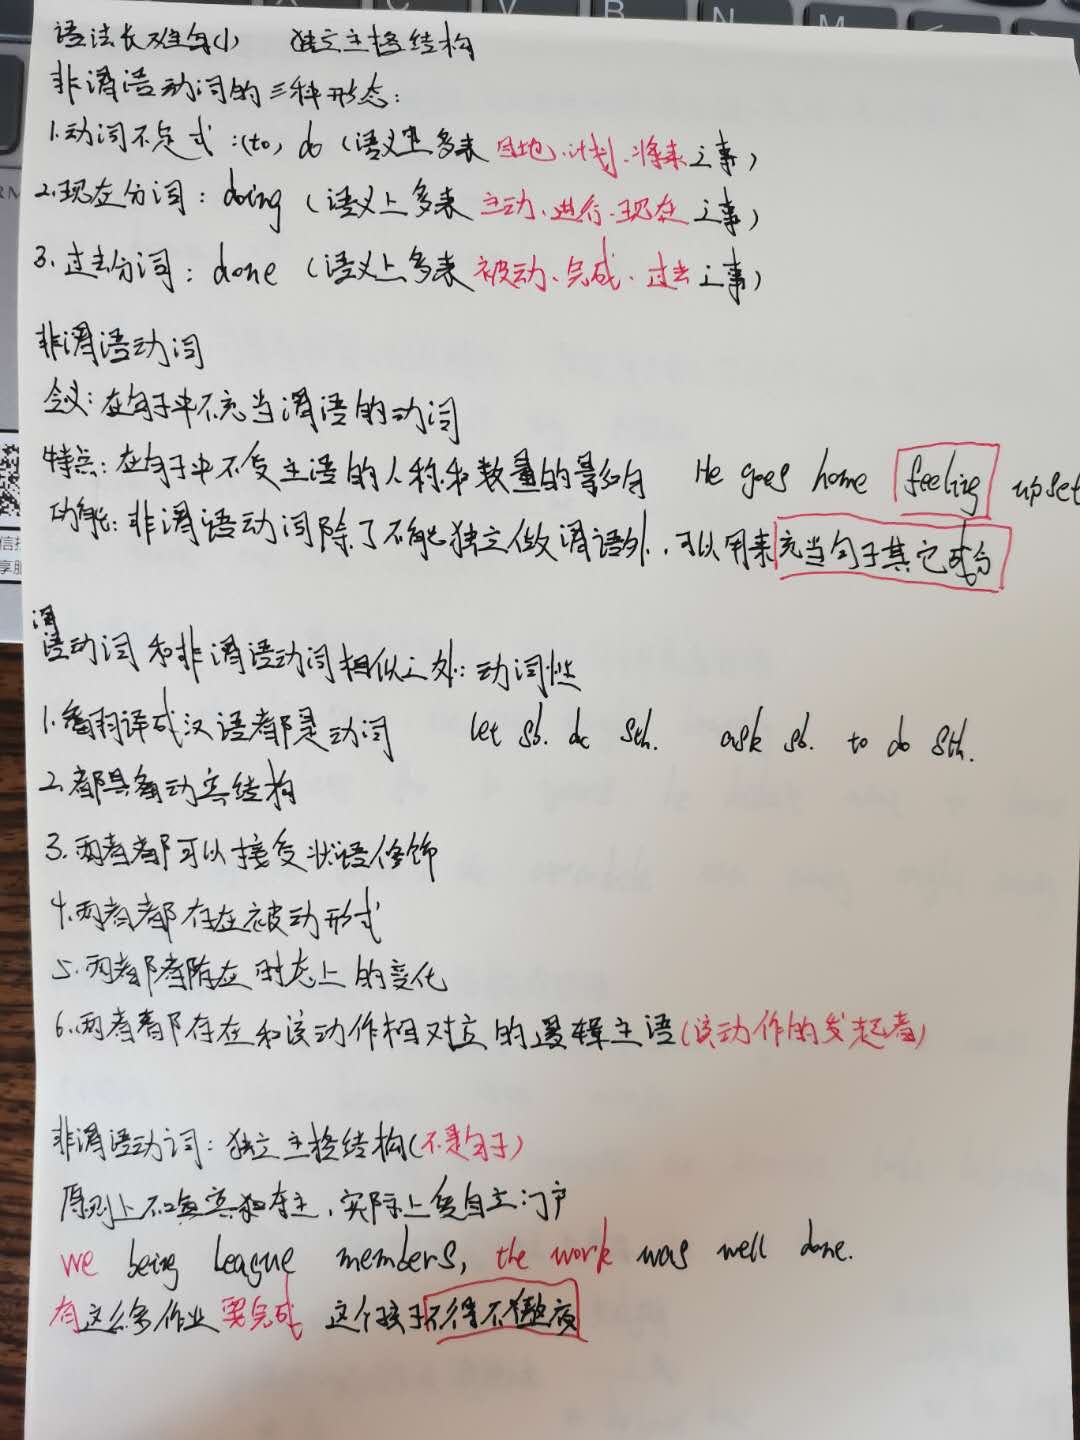 语法长难句小 独立主格结构
非谓语动词的三种形态:
1.动词不定式:(to) do (语义上多表目地、计划、将来之事)
2.现在分词: doing (语义上多表主动、进行、现在之事)
3.过去分词: done (语义上多表被动、完成、过去之事)
非谓语动词
含义:在句子中不充当谓语的动词
特点:在句子中不受主语的人称和数量的影响 He goes home feeling upset
功能:非谓语动词除了不能独立做谓语外,可以用来充当句子其它成分
谓语动词和非谓语动词相似之处:动词性
1.翻译成汉语都是动词 let sb. do sth. ask sb. to do sth.
2.都具备动宾结构
3.两者都可以接受状语修饰
4.两者都存在被动形式
5.两者都存在时态上的变化
6.两者都存在和该动作相对立的逻辑主语(该动作的发起者)
非谓语动词:独立主格结构(不是句子)
原则上不喧宾夺主,实际上自立门户
we being League members, the work was well done.
有这么多作业要完成 这个孩子不得不熬夜